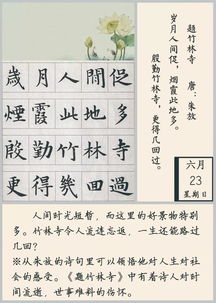 歲月人間促
煙霞此地多
殷勤竹林寺
更得幾回過
题竹林寺
唐：朱放
岁月人间促，烟霞此地多。
殷勤竹林寺，更得几回过。
六月
23
星期日
人间时光短暂，而这里的好景物特别
多。竹林寺令人流连忘返，一生还能路过
几回？
※从朱放的诗句里可以领悟他对人生对社
会的感受。《题竹林寺》中有着诗人对时
间流逝，世事难料的伤怀。